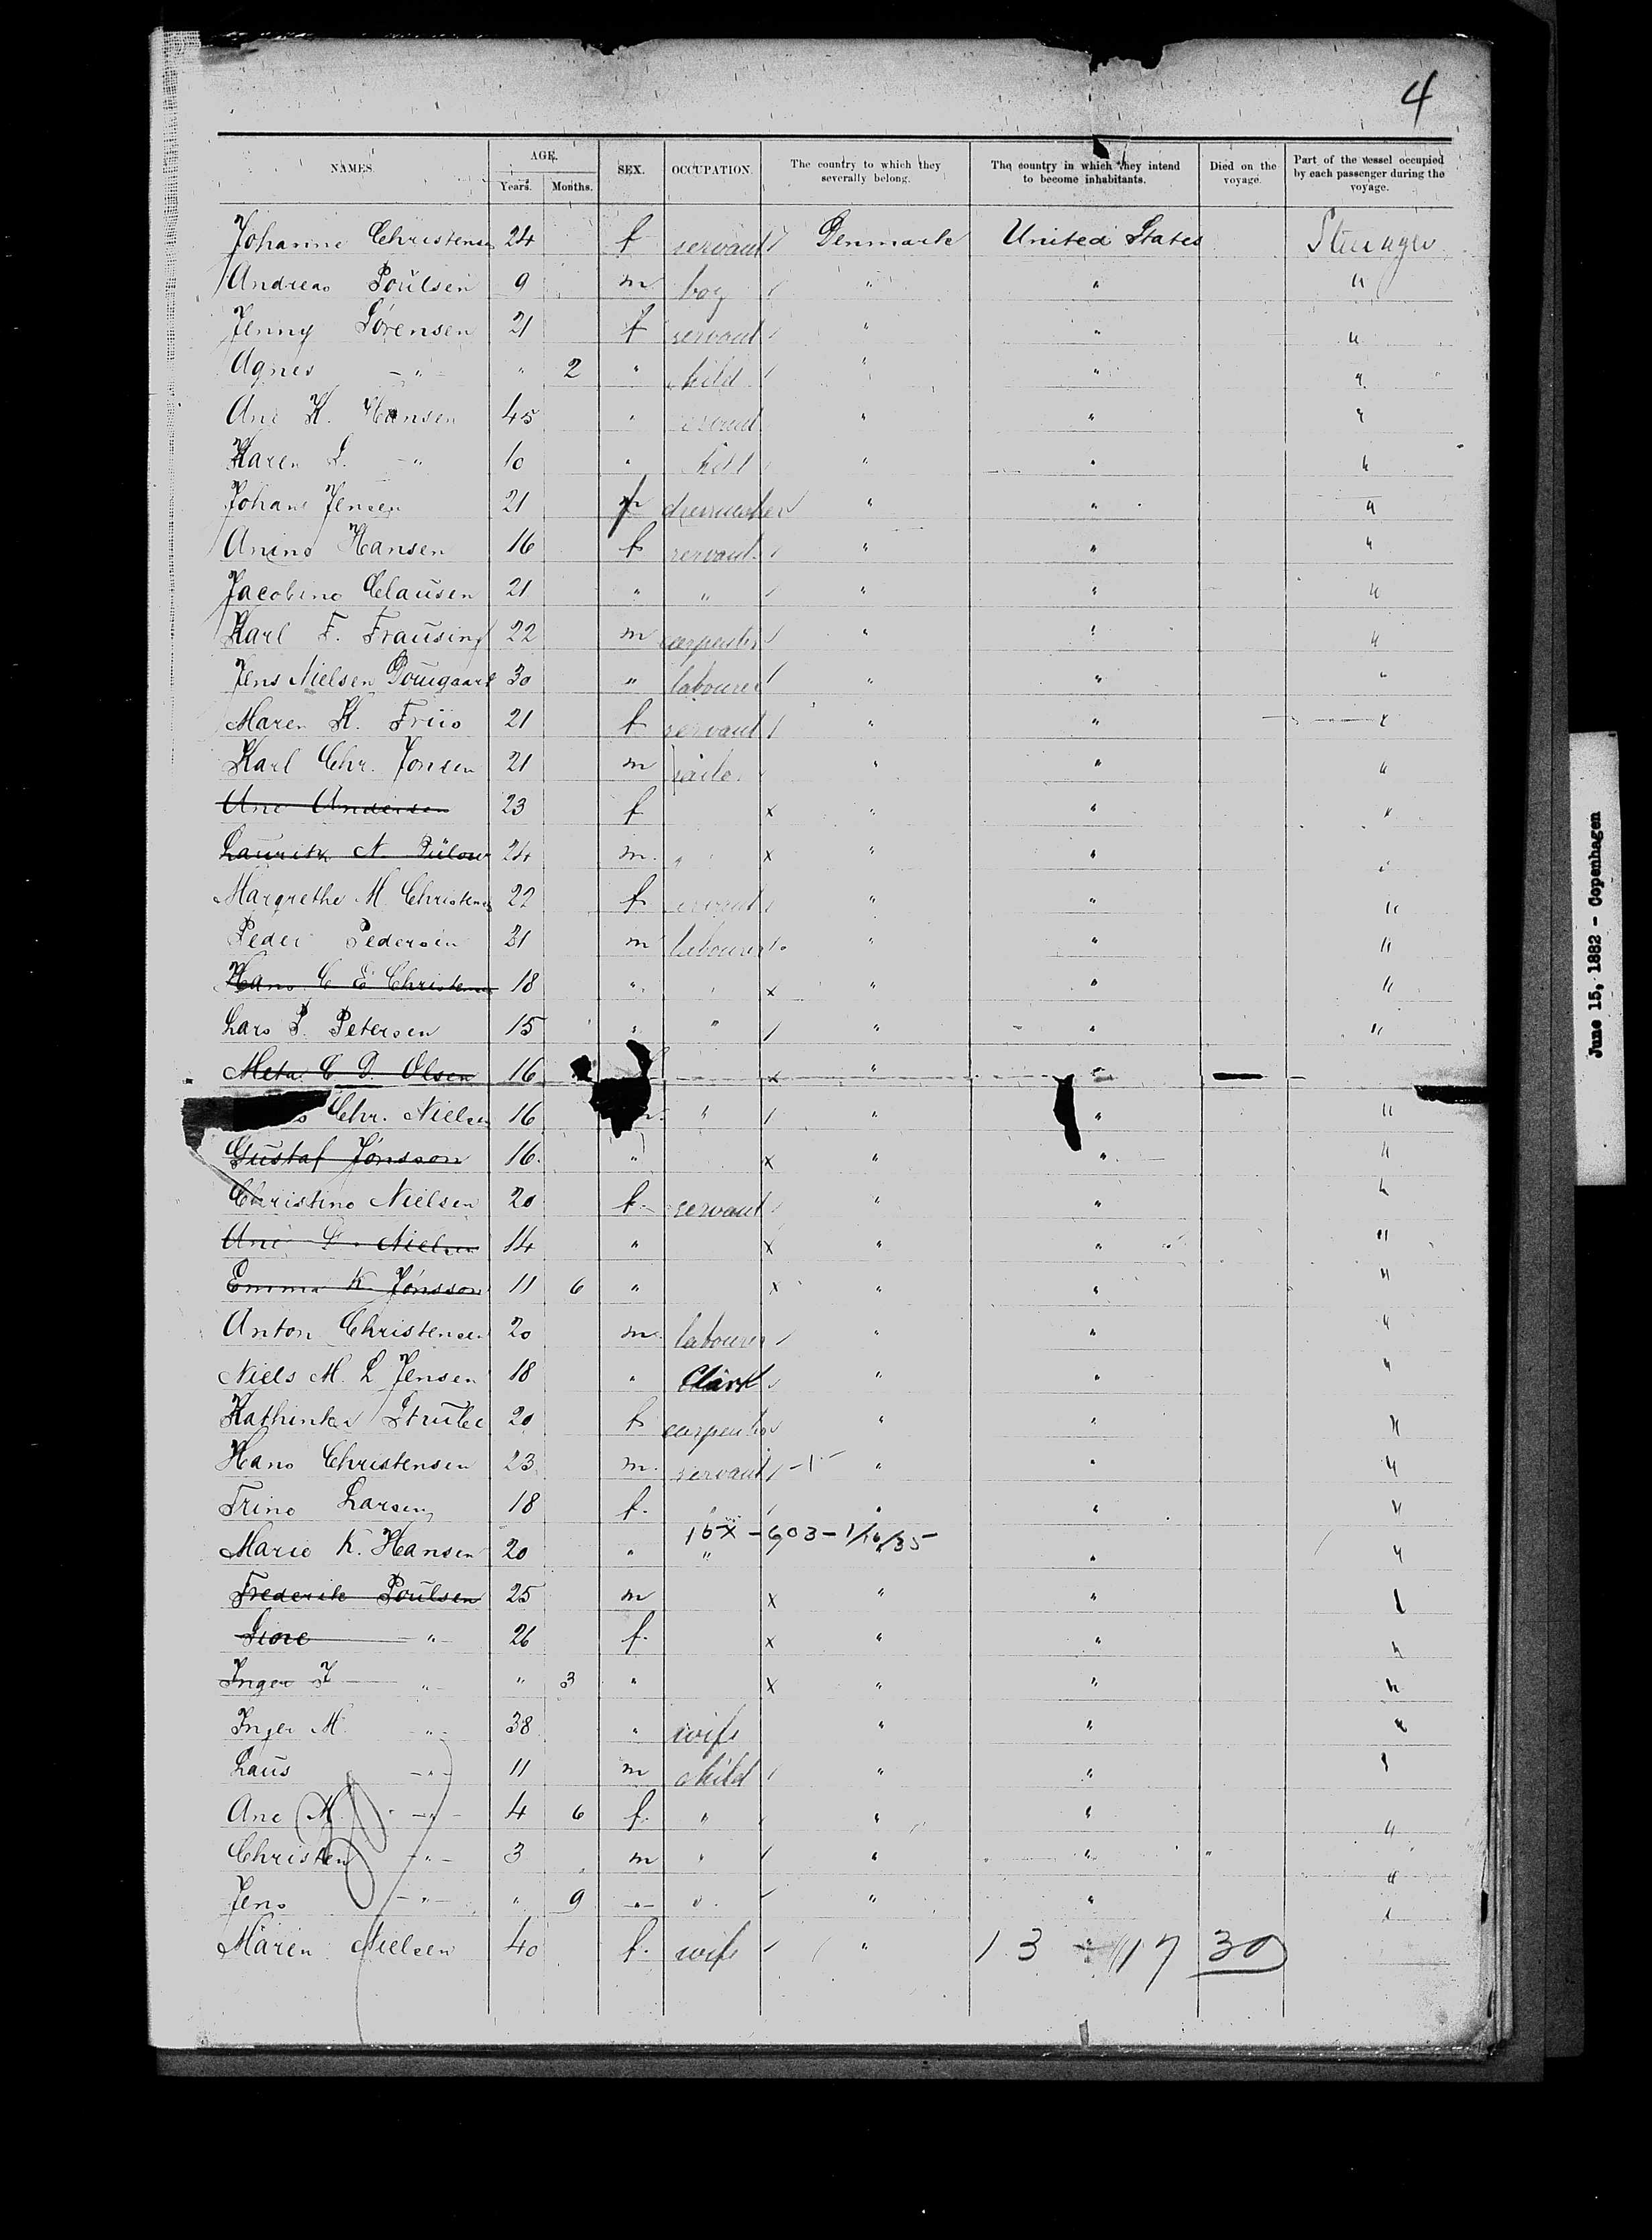 4
NAMES. AGE. Years. Months. SEX. OCCUPATION. The country to which they severally belong. The country in which they intend to become inhabitants. Died on the voyage. Part of the vessel occupied by each passenger during the voyage.
Johanne Christensen 24 f servant / Denmark United States Steerage
Andreas Poulsen 9 m boy / " " "
Jenny Sörensen 21 f servant / " " "
Agnes - " - " 2 " child / " " "
Ane K. Hansen 45 " servant " " "
Karen L. - " 10 " child " " "
Johane Jensen 21 f dressmaker " " "
Anine Hansen 16 f servant / " " "
Jacobine Clausen 21 " " / " " "
Karl F. Frausing 22 m carpenter / " " "
Jens Nielsen Domgaard 30 " labourer / " " "
Maren K. Friis 21 f servant / " " "
Karl Chr. Jonsen 21 m " " "
Ane Andersen 23 f x " " "
Lauritz N. Bülow 24 m. " x " " "
Margrethe M. Christensen 22 f servant / " " "
Peder Pedersen 21 m labourer " " "
Hans C E Christensen 18 " x " " "
Lars P. Petersen 15 " " / " " "
Meta C D. Olsen 16 x " "
Chr. Nielsen 16 m. " / " " "
Gustaf Jönsson 16. " x " " "
Christine Nielsen 20 f. servant / " " "
Ane Nielsen 14 " x " " "
Emma K. Jönsson 11 6 " x " " "
Anton Christensen 20 m. labourer / " " "
Niels M. L Jensen 18 " Clark / " " "
Kathinka Strube 20 f carpenter " " "
Hans Christensen 23 m. servant / -1- " " "
Trine Larsen 18 f. " / " " "
15x - 603 - 1/16/35
Marie K. Hansen 20 " " " " "
Frederik Poulsen 25 m x " "
Sine - " - 26 f. x " " "
Inger J - " - " 3 " x " " "
Inger M. - " - 38 " wife " " "
Laus - " - 11 m child / " "
Ane M. - " - 4 6 f. " " " "
Christen - " - 3 m " / " " " "
Jens - " - " 9 - " - " / " "
Maren Nielsen 40 f. wife / " 13 17 30
June 15, 1882 - Copenhagen